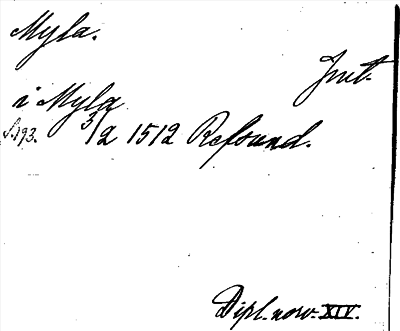 Myla.
Jnt.
i Myla
s. 193. 3/2 1512 Refsund.
Dipl. norv. XIV.